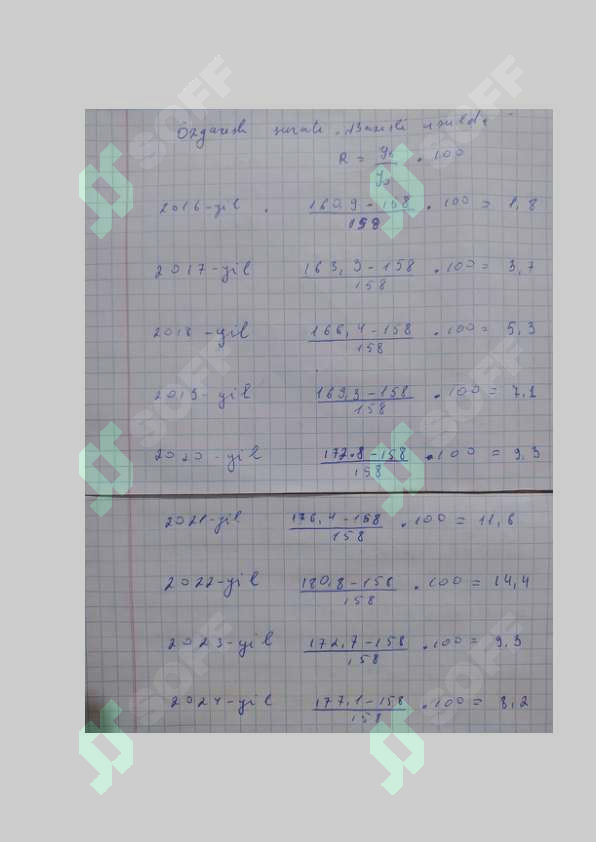 O'zgarish surati. Bazisli usulda
R = yₖ/y₀ • 100
2016-yil. 160,9-158/158 • 100 = 1,8
2017-yil 163,9-158/158 • 100 = 3,7
2018-yil 166,4-158/158 • 100 = 5,3
2019-yil 169,3-158/158 • 100 = 7.1
2020-yil 172.8-158/158 • 100 = 9,3
2021-yil 176,4-158/158 • 100 = 11,6
2022-yil 180,8-158/158 • 100 = 14,4
2023-yil 172,7-158/158 • 100 = 9,3
2024-yil 177,1-158/158 • 100 = 8,2
SOFF
SOFF
SOFF
SOFF
SOFF
SOFF